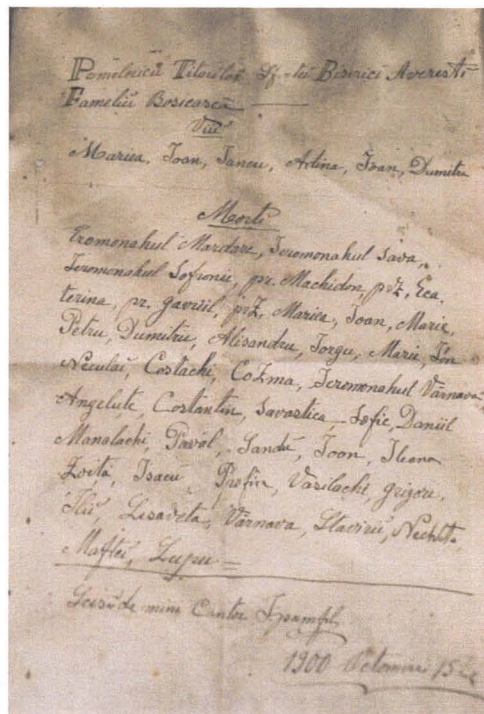 Pomelnicu Titorilor Sf-tei Biserici Averesti
Fameliu Bosieasca
Vii
Mariea, Ioan, Iancu, Adina, Ioan, Dumitru
Morti
Eromonahul Mardare, Ieromonahul Sava,
Ieromonahul Sofronie, pr. Machidon, prz, Eca
terina, pr. gavriil, prz, Mariea, Ioan, Marie,
Petru, Dumitru, Alisandru, Iorgu, Marie, In
Neculai, Costachi, Cozma, Ieromonahul Vârnava
Angelute, Costantin, Savastica, Sofie, Daniil
Manalachi, Pavăl, Sandu, Ioan, Ileana
Zoiţa, Isacu, Profira, Vasilachi, grigore,
Ilie, Lisaveta, Vârnava, Slavirii, Nechita,
Maftei, Lupu =
Scisă de mine Cantor
1900 Octomvrie 15